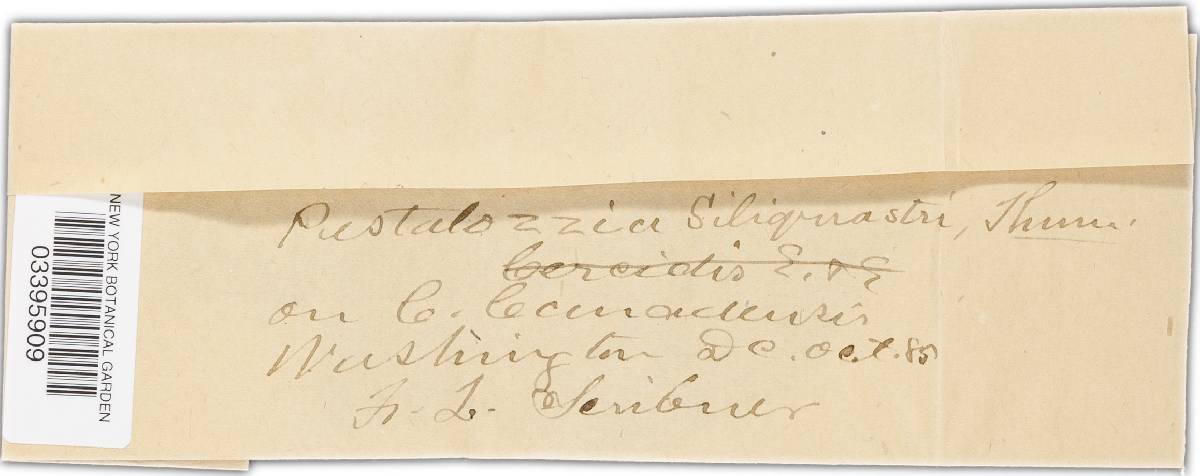 NEW YORK BOTANICAL GARDEN
03395909
Pestalozzia Siliquastri, Thum.
Cercidis E. & E
on C. Canadensis
Washington D C. Oct. 85
F. L. Scribner